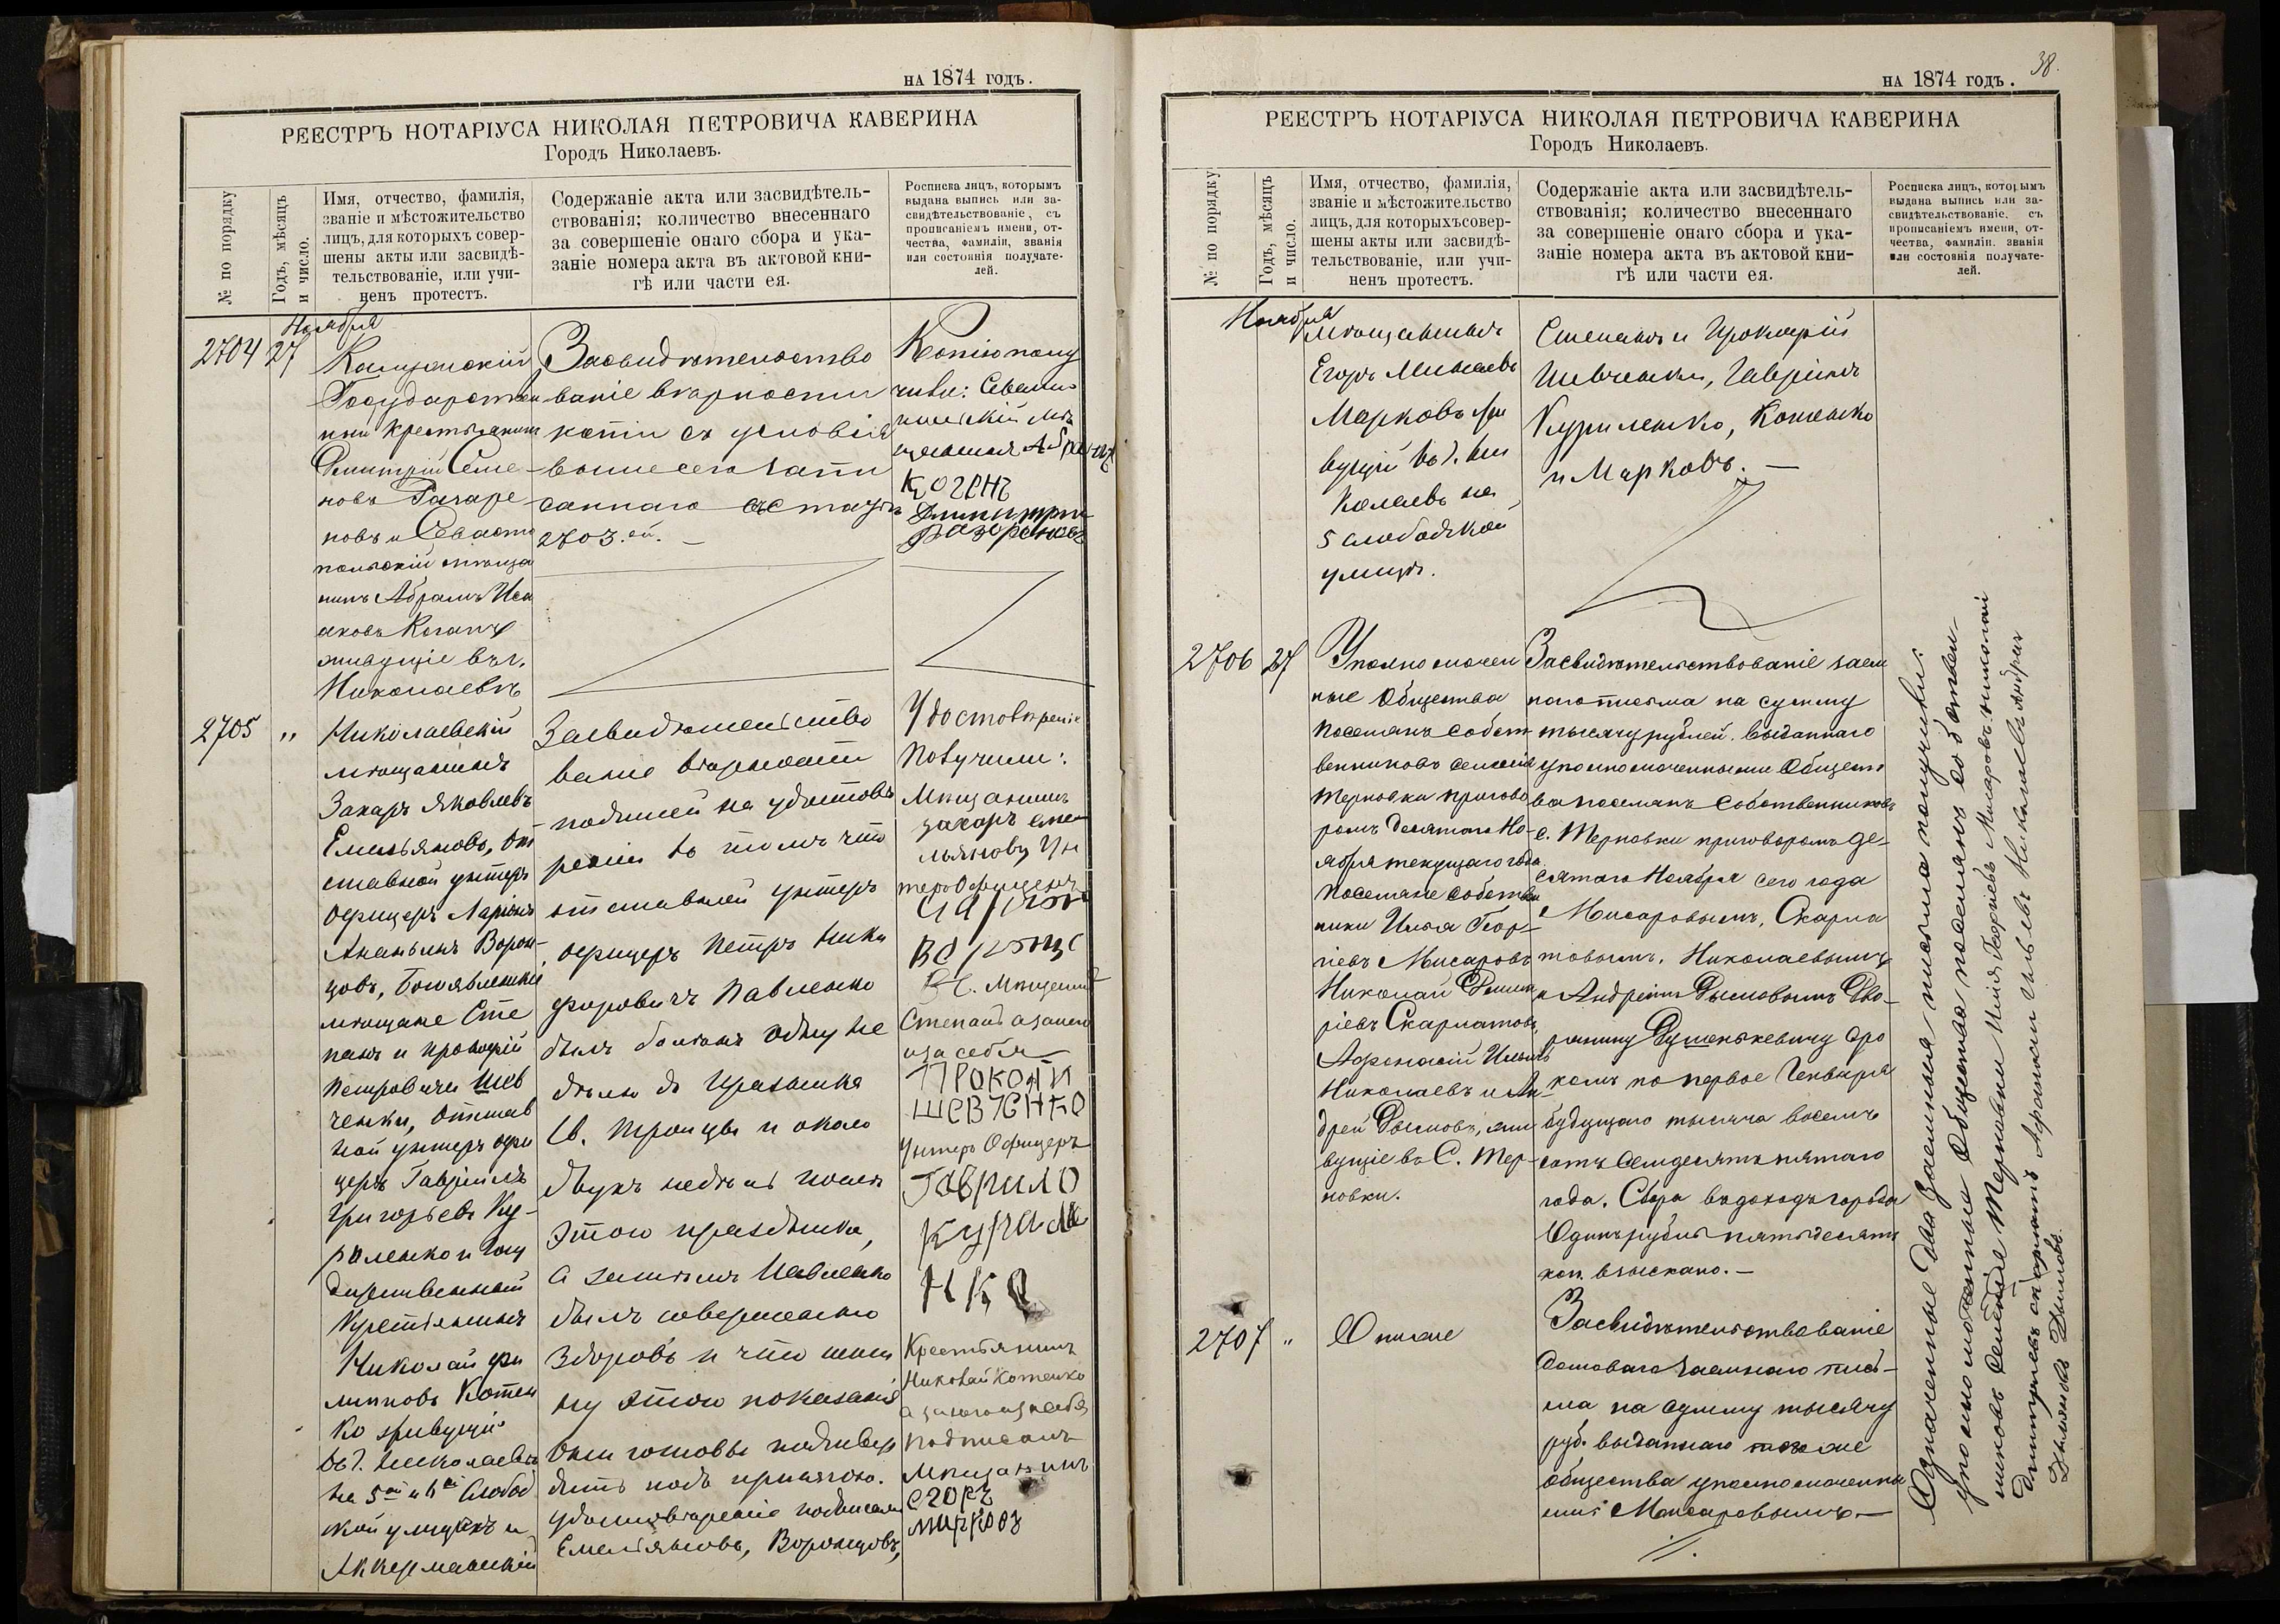 на 1874 годъ.
РЕЕСТРЪ НОТАРІУСА НИКОЛАЯ ПЕТРОВИЧА КАВЕРИНА
Городъ Николаевъ.
№ по порядку
Годъ, мѣсяцъ
и число.
Имя, отчество, фамилія,
званіе и мѣстожительство
лицъ, для которыхъ совер-
шены акты или засвидѣ-
тельствованіе, или учи-
ненъ протестъ.
Содержаніе акта или засвидѣтель-
ствованія; количество внесеннаго
за совершеніе онаго сбора и ука-
заніе номера акта въ актовой кни-
гѣ или части ея.
Росписка лицъ, которымъ
выдана выпись или за-
свидѣтельствованіе, съ
прописаніемъ имени, от-
чества, фамиліи, званія
или состоянія получате-
лей.
Ноября
2704 27
Государствен
ный крестьянинъ
Дмитрій Семе
новъ
новъ и Севасто
польскій мѣща
нинъ Абрамъ Иса
аковъ Коганъ
живущіе въ г.
Николаевѣ
Засвидѣтельство
ваніе вѣрности
копіи съ условія
выше сего запи
саннаго въ статьѣ
2703.ей. —
Копію полу
чили: Севасто
польскій мѣ
щанинъ Абрамъ
Когенъ
Дмитрій
2705 "
Николаевскій
мѣщанинъ
Захаръ Яковлевъ
Емельяновъ, От
ставной унтеръ
офицеръ Ларіонъ
Ананьинъ Ворон-
цовъ, Богоявленскіе
мѣщане Сте
панъ и Прокофій
Петровичи Шев
ченки, Отстав
ной унтеръ офи
церъ Гавріилъ
Григорьевъ Ку-
риленко и Госу
дарственный
Крестьянинъ
Николай Фи
липповъ Котен
ко живущій
въ г. Николаевѣ
на 5ой и 6ой Слобод
ской улицахъ и
Аккерманскій
Засвидѣтельство
ваніе вѣрности
подписей на удостовѣ
реніи въ томъ что
отставной унтеръ
офицеръ Петръ Ники
форовичъ Павленко
былъ боленъ одну не
дѣлю до праздника
Св. Троицы и около
двухъ недѣль послѣ
этого праздника,
а затѣмъ Павленко
былъ совершенно
здоровъ и что исти
ну этого показанія
они готовы подтвер
дить подъ присягою.
удостовѣреніе подписали
Емельяновъ, Воронцовъ,
Удостовѣреніе
Получили:
Мещанинъ
Захаръ Еме
льяновъ Ун
теръ Офицеръ
Степанъ а за него
и за себя
ПРОКОФИ
ШЕВЧЕНКО
Унтеръ Офицеръ
Гаврило
Курил
НКО
Крестьянинъ
Николай Котенко
Подписалъ
Мещанинъ
Егоръ
Марковъ
38.
на 1874 годъ.
РЕЕСТРЪ НОТАРІУСА НИКОЛАЯ ПЕТРОВИЧА КАВЕРИНА
Городъ Николаевъ.
№ по порядку
Годъ, мѣсяцъ
и число.
Имя, отчество, фамилія,
званіе и мѣстожительство
лицъ, для которыхъ совер-
шены акты или засвидѣ-
тельствованіе, или учи-
ненъ протестъ.
Содержаніе акта или засвидѣтель-
ствованія; количество внесеннаго
за совершеніе онаго сбора и ука-
заніе номера акта въ актовой кни-
гѣ или части ея.
Росписка лицъ, которымъ
выдана выпись или за-
свидѣтельствованіе, съ
прописаніемъ имени, от-
чества, фамиліи, званія
или состоянія получате-
лей.
Ноября
мѣщанинъ
Егоръ Минаевъ
Марковъ жи
вущій въ г. Ни
колаевѣ на
5 слободской
улицѣ.
Степанъ и Прокофій
Шевченки, Гавріилъ
Куриленко, Котенко
и Марковъ. —
2706 27
Уполномочен
ные Общества
Поселянъ собст
венниковъ селенія
Терновки пригово
ромъ десятаго Но-
ября текущаго года
Поселяне собствен
ники Илья Геор-
гіевъ Мисаровъ
Николай Дмит
ріевъ Скарлатовъ,
Афонасій Ильинъ
Николаевъ и Ан-
дрей Дымовъ, жи
вущіе въ С. Тер-
новки.
Засвидѣтельствованіе заем
наго письма на сумму
тысячу рублей. выданнаго
уполномоченными Общест
ва поселянъ Собственниковъ
с. Терновки приговоромъ де-
сятаго Ноября сего года
Мисаровымъ, Скарла
товымъ, Николаевымъ
и Андреемъ Дымовымъ Дво-
рянину сро
комъ по первое Генваря
будущаго тысяча восемь
сотъ Семдесятъ пятаго
года. Сбора въ доходъ города
Одинъ рубль пятьдесятъ
коп. взыскано. —
2707 "
Они же
Засвидѣтельствованіе
таковаго заемнаго пись-
ма на сумму тысячу
руб. выданнаго того же
общества уполномоченны
ми Мисаровымъ —
Означенные два заемныя письма получили:
уполномоченные Общества поселянъ собствен-
никовъ селенія Терновки Илія Георгіевъ Мисаровъ николай
Дмитриевъ скарлатъ Афанасий ильевъ Николаевъ андрей
Дымовъ.